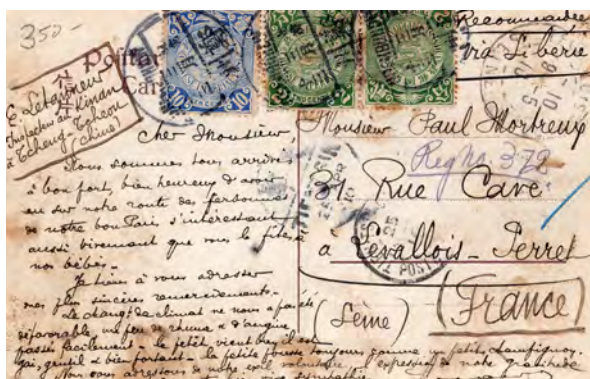 350-
Postcard
Recommandée
via Sibérie
E. Letourneur
Inspecteur au Kinan
à Tcheng-Tcheou
(Chine)
Cher Monsieur
Nous sommes tous arrivés
à bon port, bien heureux d'avoir
eu sur notre route des personnes
de notre bon Paris s'intéressant
aussi vivement que vous le fîtes à
nos bébés.
Je tiens à vous adresser
mes plus sincères remerciements.
Le changt de climat ne nous a pas été
défavorable, un peu de rhume & d'angine
passés facilement. le petit vieux boy, il est
gai, gentil & bien portant. la petite pousse toujours comme un petit champignon.
Nous vous adressons de notre exil volontaire l'expression de notre gratitude
sympathie
Monsieur Paul Mortreux
Reg No. 372
31 Rue Cave
à Levallois-Perret
(Seine)
(France)